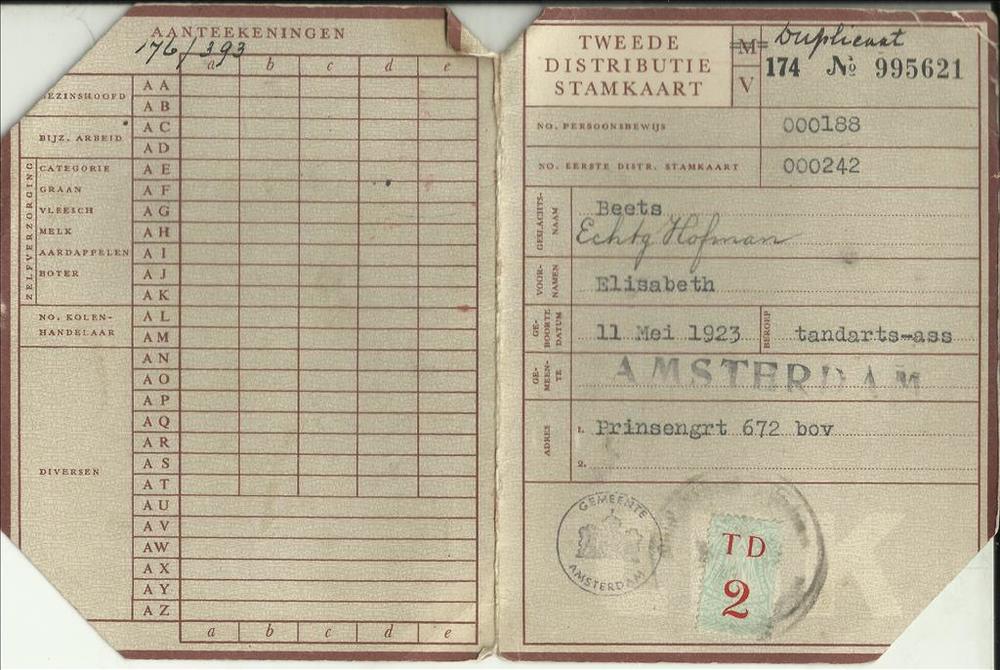 AANTEEKENINGEN
176/393
a b c d e
GEZINSHOOFD
A A
A B
BIJZ. ARBEID
A C
A D
ZELFVERZORGING
CATEGORIE A E
GRAAN A F
VLEESCH A G
MELK A H
AARDAPPELEN A I
BOTER A J
A K
NO. KOLEN-
HANDELAAR
A L
A M
DIVERSEN
A N
A O
A P
A Q
A R
A S
A T
A U
A V
A W
A X
A Y
A Z
a b c d e
TWEEDE
DISTRIBUTIE
STAMKAART
M
V
Duplicaat
174 No 995621
NO. PERSOONSBEWIJS 000188
NO. EERSTE DISTR. STAMKAART 000242
GESLACHTS-
NAAM
Beets
Echtg Hofman
VOOR-
NAMEN
Elisabeth
GE-
BOORTE
DATUM
11 Mei 1923
BEROEP
tandarts-ass
GE-
MEEN-
TE
AMSTERDAM
ADRES
1. Prinsengrt 672 bov
2.
GEMEENTE
AMSTERDAM
TD
2